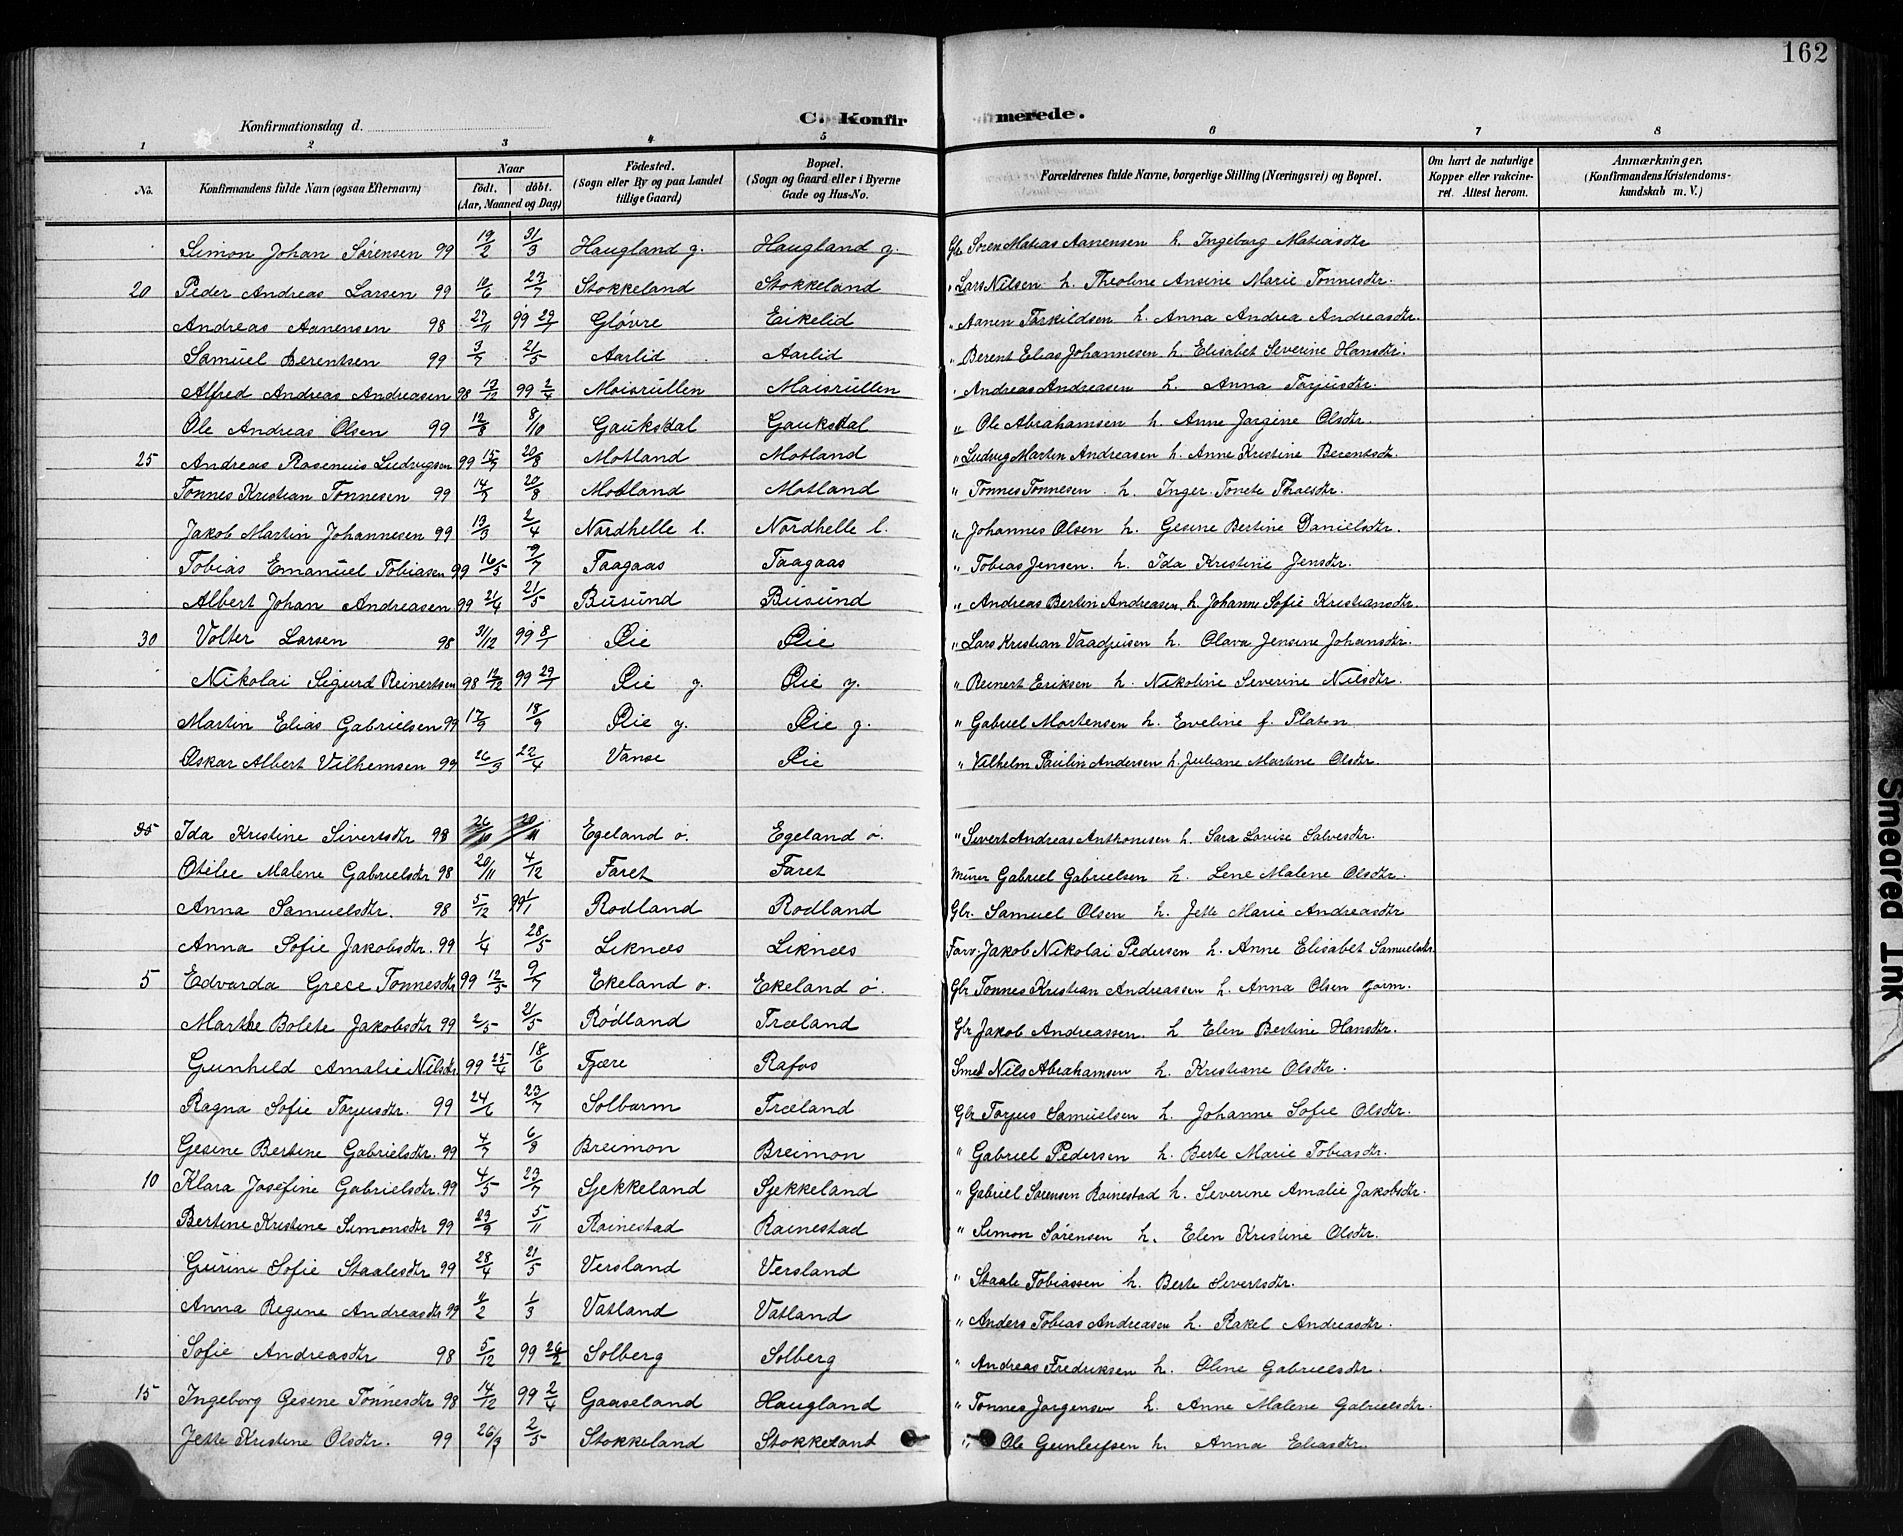 162
Konfirmationsdag d.
C. Konfirmerede.
1 2 3 4 5 6 7 8
No. Konfirmandens fulde Navn (ogsaa Efternavn) Naar født. døbt. (Aar, Maaned og Dag) Födested. (Sogn eller By og paa Landet tillige Gaard) Bopæl. (Sogn og Gaard eller i Byerne Gade og Hus-No. Forældrenes fulde Navne, borgerlige Stilling (Næringsvei) og Bopæl. Om havt de naturlige Kopper eller vakcineret. Attest herom. Anmærkninger. (Konfirmandens Kristendomskundskab m. V.)
Simon Johan Sørensen 99 19/2 31/3 Haugland g. Haugland g. Gbr Soren Matias Aanensen h. Ingeborg Matiasdtr
20 Peder Andreas Larsen 99 10/6 23/7 Stokkeland Stokkeland " Lars Nilsen h. Theoline Ansine Marie Tønnesdtr.
Andreas Aanensen 98 27/11 99 29/1 Gløvre Eikelid " Aanen Torkildsen h. Anna Andrea Andreasdtr.
Samuel Berentsen 99 3/7 21/5 Aarlid Aarlid " Berent Elias Johannesen h. Elisabet Severine Hansdtr.
Alfred Andreas Andreasen 98 17/12 99 2/4 Moisrullen Moisrullen " Andreas Andreasen h. Anna Torjusdtr.
Ole Andreas Olsen 99 12/8 8/10 Gauksdal Gauksdal " Ole Abrahamsen h. Anne Jorgine Olsdtr.
25 Andreas Rosenius Ludvigsen 99 15/7 20/8 Motland Motland " Ludvig Martin Andreasen h. Anne Kristine Berentsdt
Tønnes Kristian Tønnesen 99 14/7 20/8 Motland Motland " Tønnes Tønnesen h. Inger Tonete Thoesdtr.
Jakob Martin Johannesen 99 13/3 2/4 Nordhelle l. Nordhelle l. " Johannes Olsen h. Gesine Bertine Danielsdtr.
Tobias Emanuel Tobiasen 99 16/5 9/7 Faagaas Faagaas " Tobias Jensen. h. Ida Kristine Jensdtr.
Albert Johan Andreasen 99 21/4 21/5 Busund Busund " Andreas Bertin Andreasen h. Johanne Sofie Kristiansdtr.
30 Volter Larsen 98 31/12 99 8/1 Øie Øie " Lars Kristian Vaadjusen h. Olava Jensine Johansdtr.
Nikolai Sigurd Reinertsen 98 12/12 99 29/1 Øie g. Øie g. " Reinert Eriksen h. Nikoline Severine Nilsdtr.
Martin Elias Gabrielsen 99 17/9 18/9 Øie g. Øie g. " Gabriel Mortensen h. Eveline f. Platon
Oskar Albert Vilhemsen 99 26/3 22/4 Vanse Øie " Vilhelm Paulin Andersen h. Juliane Martine Olsdtr.
Ida Kristine Sivertsdtr 98 26/10 20/11 Egeland ø. Egeland ø. " Sivert Andreas Anthonisen h. Sara Lovise Salvesdtr.
Otilie Malene Gabrielsdtr 98 20/11 4/12 Faret Faret Murer Gabriel Gabrielsen h. Lene Malene Olsdtr.
Anna Samuelsdtr. 98 5/12 99 1/1 Rodland Rodland Gbr. Samuel Olsen h. Jette Marie Andreasdtr
Anna Sofie Jakobsdtr. 99 1/4 28/5 Liknees Liknees Farv Jakob Nikolai Pedersen h. Anne Elisabet Samuelsdtr
5 Edvarda Grece Tønnesdtr 99 12/5 9/7 Ekeland ø. Ekeland ø. Gbr Tønnes Kristian Andreassen h. Anna Olsen Gorm.
Marthe Bolete Jakobsdtr 99 2/5 21/5 Rødland Træland Gbr Jakob Andreassen. h Elen Bertine Hansdtr.
Gunhild Amalie Nilsdtr 99 25/4 18/6 Fjære Rafos Smed Nils Abrahamsen h. Kristiane Olsdtr.
Ragna Sofie Torjusdtr. 99 24/6 23/7 Træland Gbr Torjus Samuelsen h. Johanne Sofie Olsdtr.
Gesine Bertine Gabrielsdtr. 99 4/7 6/8 Breimon Breimon " Gabriel Pedersen h. Berte Marie Tobiasdtr.
10 Klara Josefine Gabrielsdtr. 99 4/5 23/7 Sjekkeland Sjekkeland " Gabriel Sørensen Rainestad h. Severine Amalie Jakobsdtr.
Bertine Kristine Simonsdtr 99 23/9 5/11 Rainestad Rainestad " Simon Sørensen h. Elen Kristine Olsdtr.
Gurine Sofie Staalesdtr 99 28/4 21/5 Versland Versland " Staale Tobiassen h. Berte Sivertsdtr.
Anna Regine Andreasdtr 99 4/2 1/3 Vatland Vatland " Anders Tobias Andreasen h. Rakel Andreasdtr.
Sofie Andreasdtr 98 5/12 99 26/2 Solberg Solberg " Andreas Fredriksen h. Oline Gabrielsdtr.
15 Ingeborg Gesine Tønnesdtr 98 14/12 99 2/4 Gaaseland Haugland " Tønnes Jorgensen h. Anne Malene Gabrielsdtr.
Jette Kristine Olsdtr. 99 26/3 2/5 Stokkeland Stokkeland " Ole Gunleifsen h. Anna Eliasdtr.
Smeared Ink